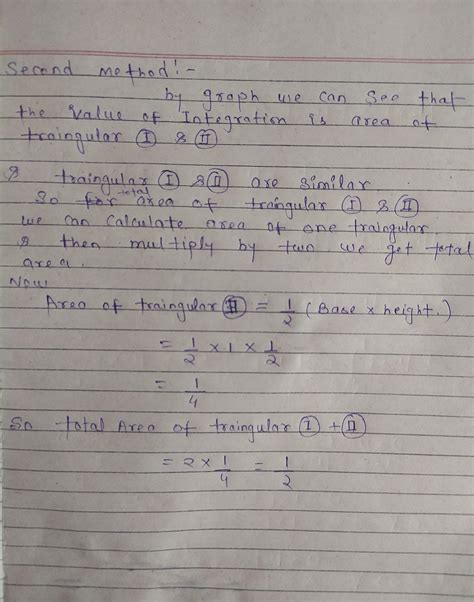 Second method:-
by graph we can see that
the value of Integration is area of
traingular Ⓘ & Ⓘⓘ
& traingular Ⓘ & Ⓘⓘ are similar
total
So for area of traingular Ⓘ & Ⓘⓘ
we can calculate area of one traingular
& then multiply by two we get total
area.
Now
Area of traingular Ⓘⓘ = 1/2 (Base × height.)
= 1/2 × 1 × 1/2
= 1/4
So total Area of traingular Ⓘ + Ⓘⓘ
= 2 × 1/4 = 1/2